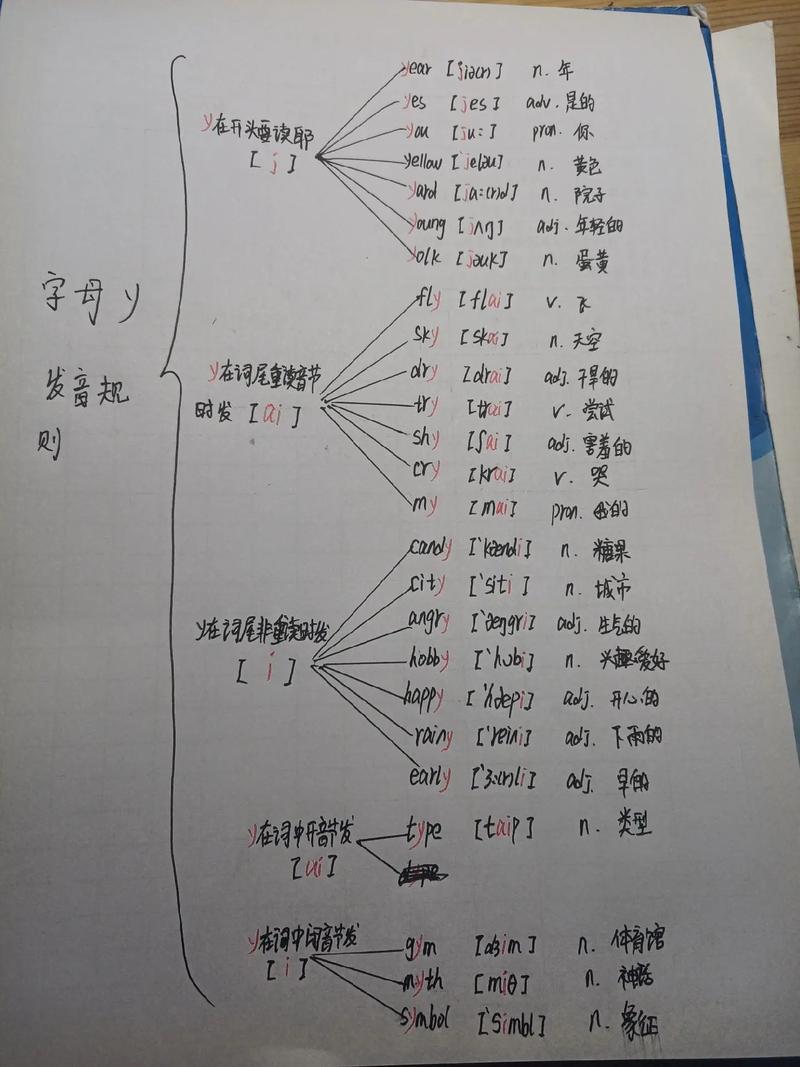 字母y
发音规
则
y在开头要读耶
[j]
year [jiə(r)] n. 年
yes [jes] adv. 是的
you [ju:] pron. 你
yellow [ˋjeləu] n. 黄色
yard [ja:(r)d] n. 院子
young [jʌŋ] adj. 年轻的
yolk [jəuk] n. 蛋黄
y在词尾重读音节
时发 [ai]
fly [flai] v. 飞
sky [skai] n. 天空
dry [drai] adj. 干旱的
try [trai] v. 尝试
shy [ʃai] adj. 害羞的
cry [krai] v. 哭
my [mai] pron. 我的
y在词尾非重读时发
[i]
candy [ˋkændi] n. 糖果
city [ˋsiti] n. 城市
angry [ˋæŋgri] adj. 生气的
hobby [ˋhɔbi] n. 兴趣爱好
happy [ˋhæpi] adj. 开心的
rainy [ˋreini] adj. 下雨的
early [ˋɜ:(r)li] adj. 早的
y在词中开音节发
[ai]
type [taip] n. 类型
y在词中闭音节发
[i]
gym [dʒim] n. 体育馆
myth [miθ] n. 神话
symbol [ˋsimbl] n. 象征